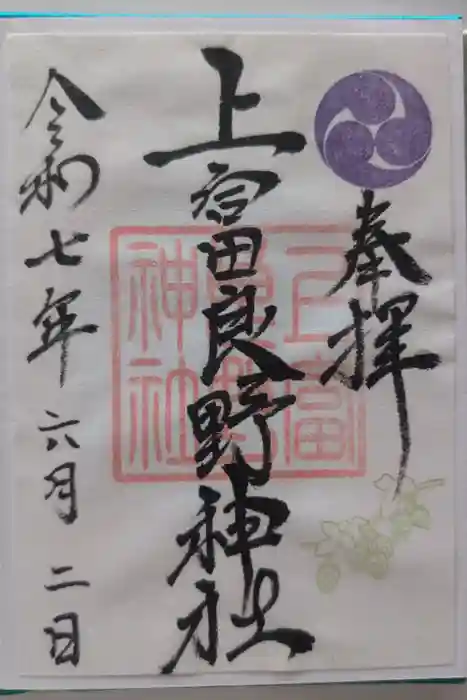 奉拝
上富良野神社
上富良野神社
令和七年六月二日